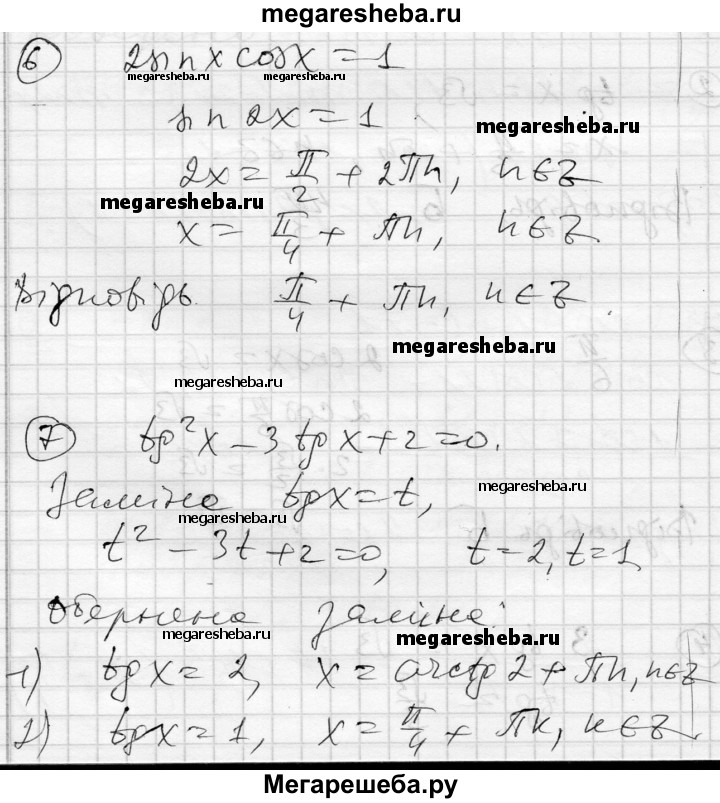 megaresheba.ru
6 2sin x cos x = 1
megaresheba.ru megaresheba.ru
sin 2x = 1
megaresheba.ru
2x = π/2 + 2πn, n∈Z
megaresheba.ru
x = π/4 + πn, n∈Z
Відповідь. π/4 + πn, n∈Z.
megaresheba.ru
megaresheba.ru
7 tg²x − 3 tg x + 2 = 0.
megaresheba.ru
Заміна tg x = t,
megaresheba.ru
t² − 3t + 2 = 0, t = 2, t = 1
Обернена заміна:
megaresheba.ru megaresheba.ru
1) tg x = 2, x = arctg 2 + πn, n∈Z
2) tg x = 1, x = π/4 + πk, k∈Z.
megaresheba.ru
Мегарешеба.ру